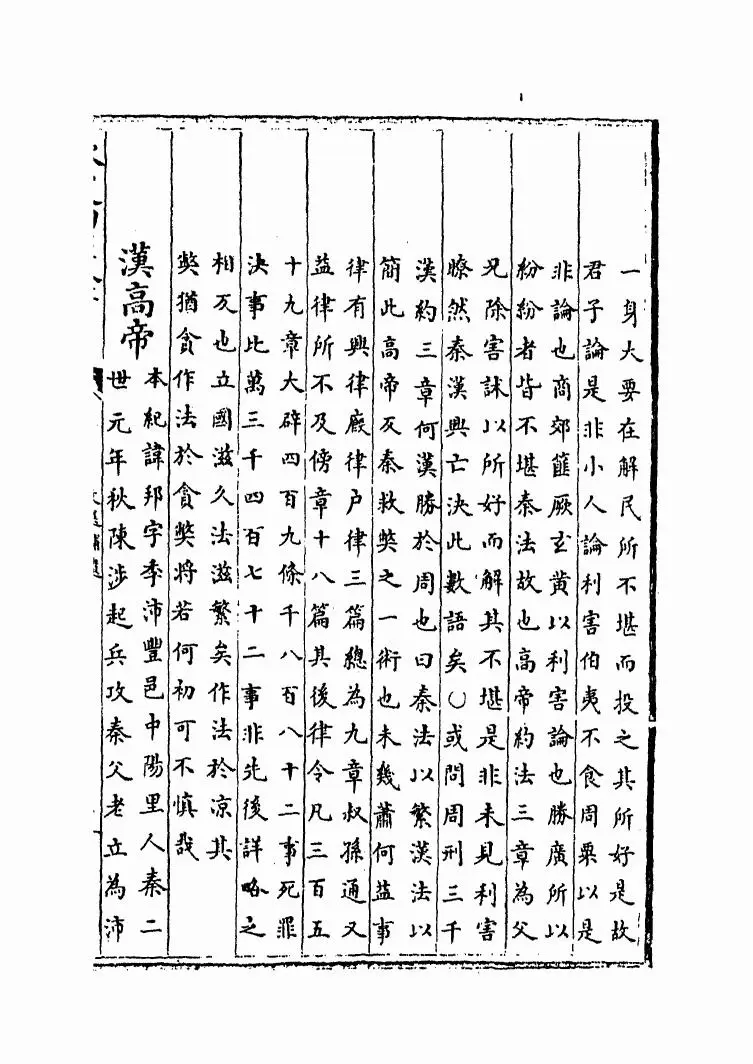 一身大要在解民所不堪而投之其所好是故
君子論是非小人論利害伯夷不食周粟以是
非論也商郊篚厥玄黄以利害論也勝廣所以
紛紛者皆不堪秦法故也高帝約法三章為父
兄除害誅以所好而解其不堪是非未見利害
瞭然秦漢興亡決此數語矣○或問周刑三千
漢約三章何漢勝於周也曰秦法以繁漢法以
簡此高帝反秦救獘之一術也未幾蕭何益事
律有興律廐律户律三篇總為九章叔孫通又
益律所不及傍章十八篇其後律令凡三百五
十九章大辟四百九條千八百八十二事死罪
決事比萬三千四百七十二事非先後詳略之
相反也立國滋久法滋繁矣作法於凉其
獘猶貪作法於貪獘將若何初可不慎哉
漢高帝
本紀諱邦字季沛豐邑中陽里人秦二
世元年秋陳涉起兵攻秦父老立為沛